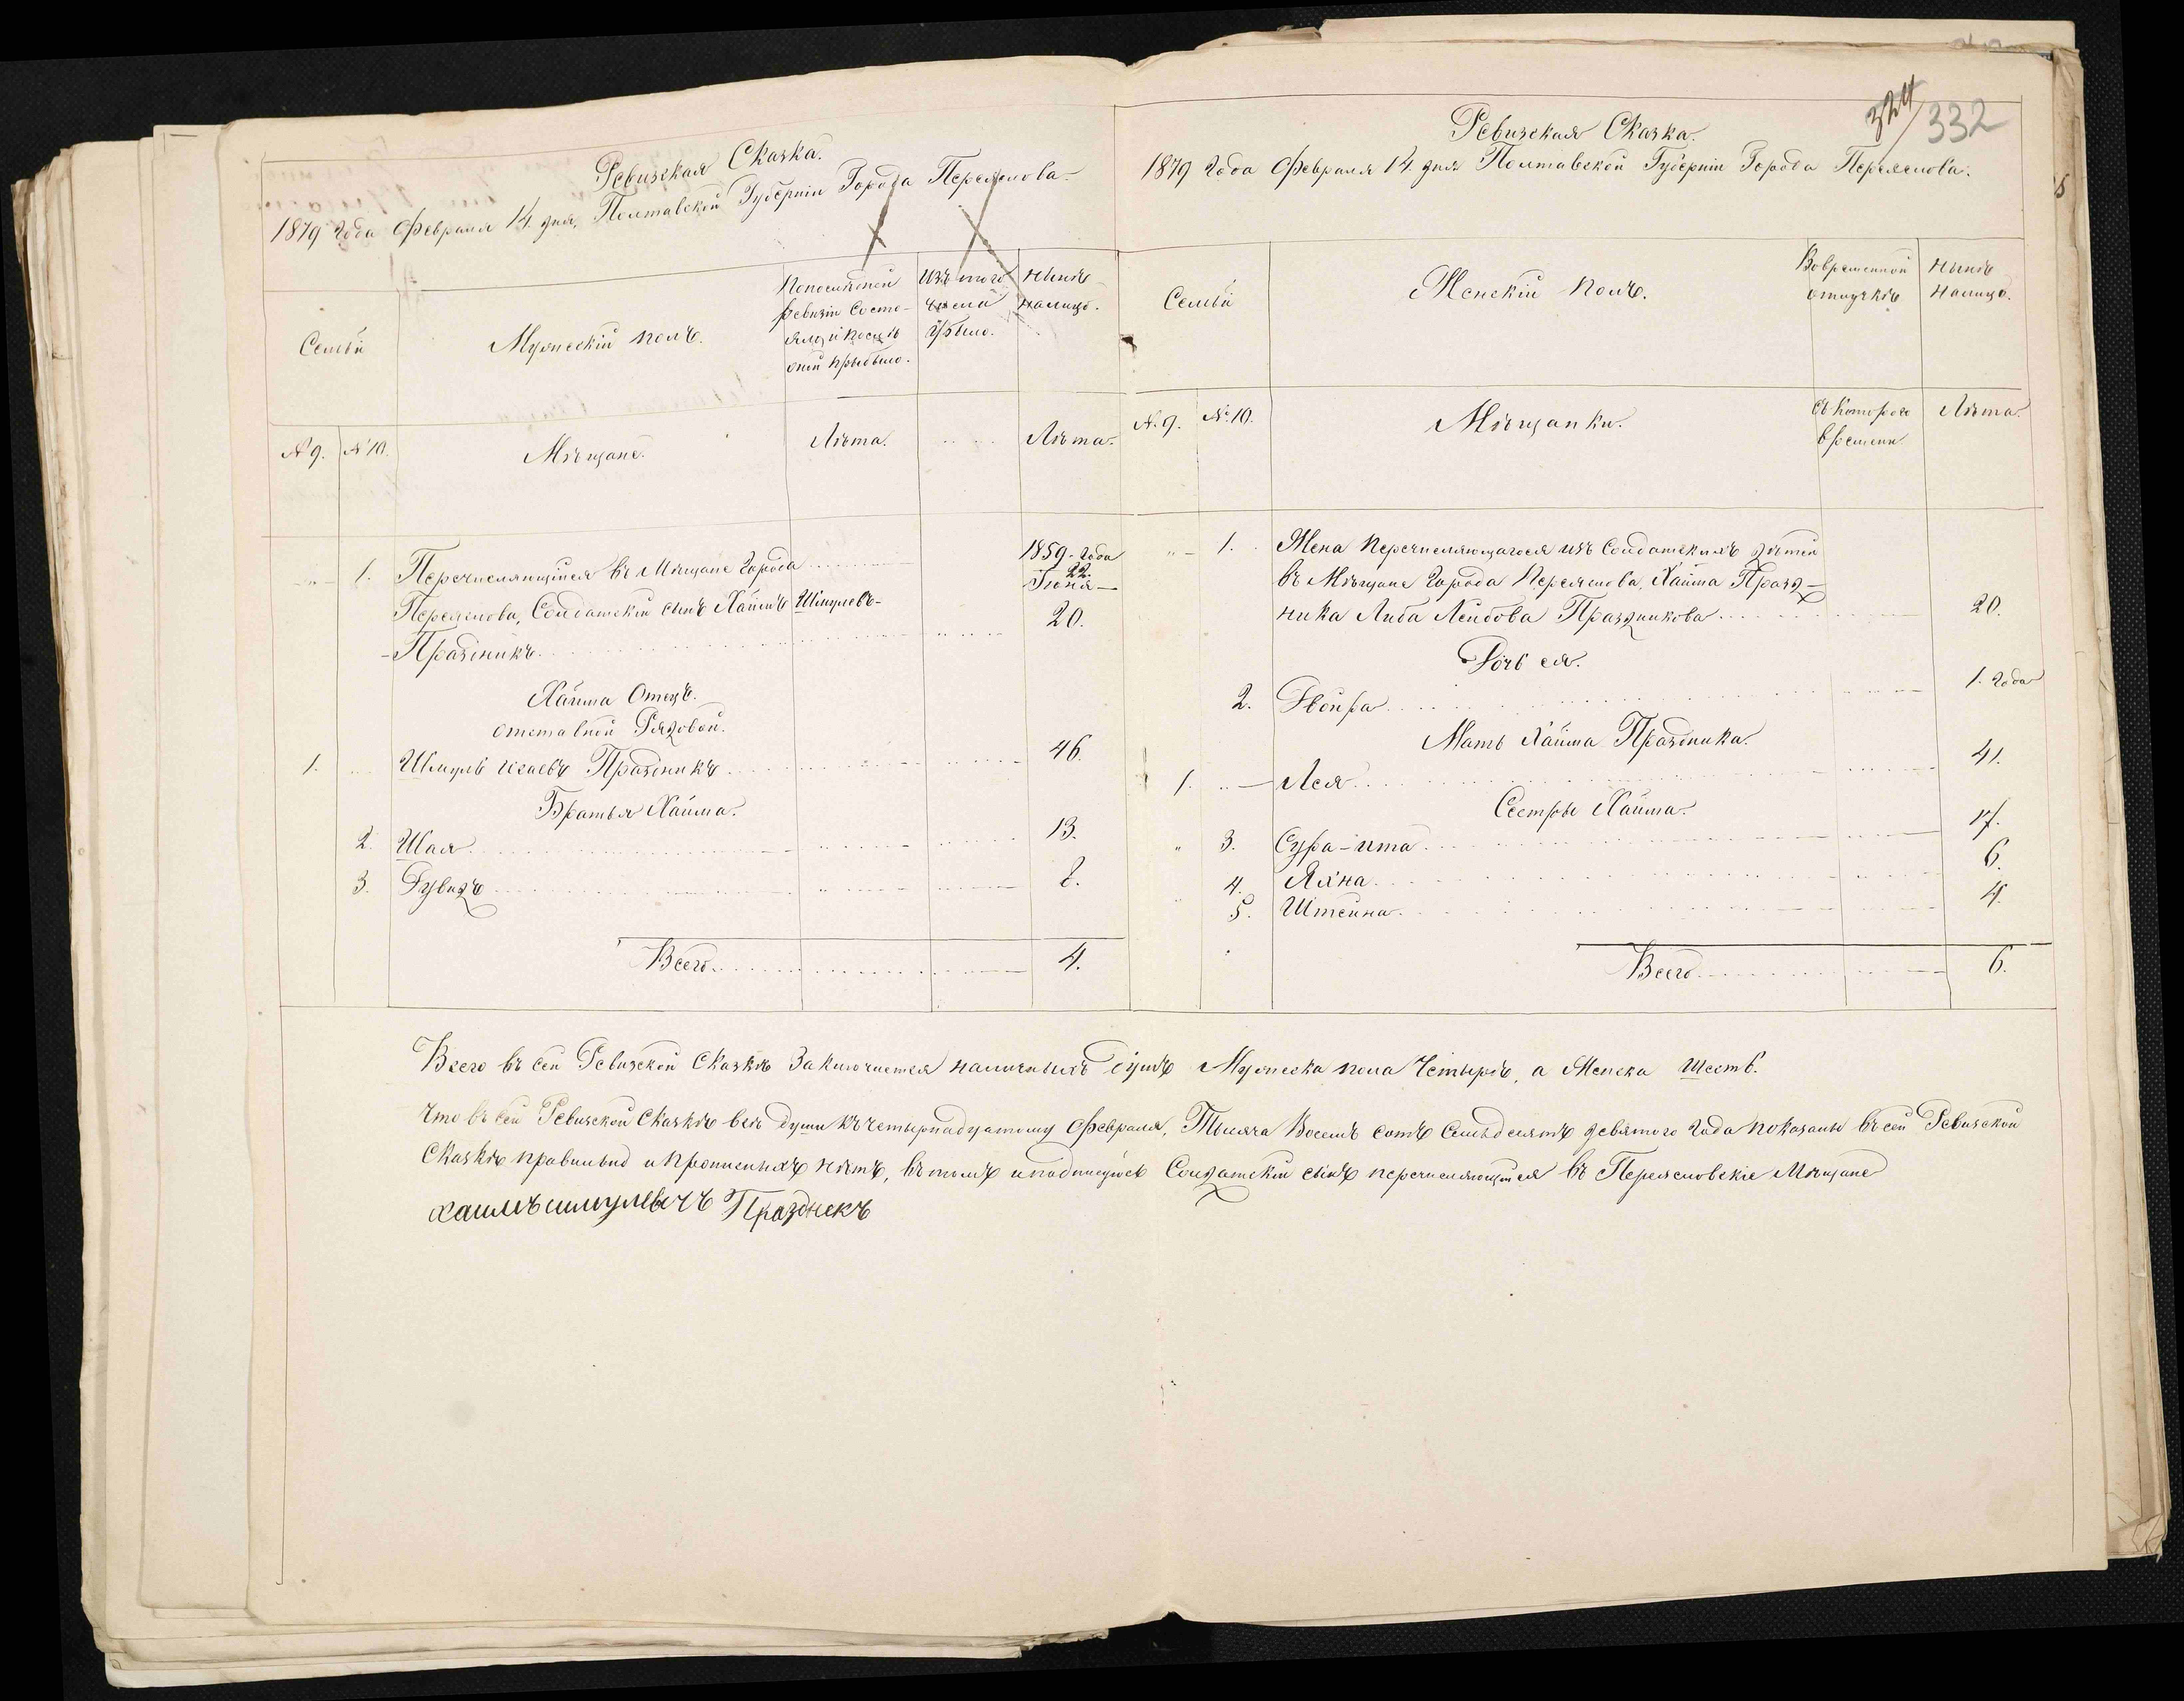 Ревизская Сказка.
1879 года Февраля 14. дня, Полтавской Губерніи Города Переяслова.
Семьи
Мужескій полъ.
Попослѣдней
ревизіи состо-
яло и послѣ
оней прибыло.
Изъ того
числа
убыло.
Нынѣ
налицо.
№ 9.
№ 10.
Мѣщане.
Лѣта.
Лѣта.
1. Перечисляющійся въ Мѣщане Города
1859. года
22.
Іюня
Переяслова, Солдатскій сынъ Хаимъ Шмулевъ-
20.
-Праздникъ.
Хаима Отецъ.
отставной Рядовой.
1. Шмуль Исаевъ Праздникъ 46.
Братья Хаима.
2. Шая 13.
3. Рувидъ 8.
Всего 4.
324/332
Ревизская Сказка.
1879 года Февраля 14. дня Полтавской Губерніи Города Переяслова.
Семьи
Женскій полъ.
Вовременной
отлучкѣ
Нынѣ
налицо.
№. 9.
№. 10.
Мѣщанки.
Съ котораго
времени
Лѣта.
1. Жена перечисляющагося изъ Солдатскихъ дѣтей
въ Мѣщане Города Переяслова, Хаима Празд-
ника Либа Лейбова Праздникова 20.
Дочь ея.
2. Двойра 1. года
Мать Хаима Праздника.
1. Лея 41.
Сестры Хаима.
3. Сура-ита 17.
4. Яхна 6.
5. Штейна 4.
Всего 6.
Всего въ сей Ревизской Сказкѣ Заключается наличныхъ душъ Мужеска пола Четырѣ, а Женска шесть.
Что въ сей Ревизской Сказкѣ всѣ души къ четырнадцатому Февраля, Тысяча Восемь сотъ Семьдесятъ девятого года показаны въ сей Ревизской
Сказкѣ правильно и прописныхъ нѣтъ, въ томъ и подписуюсь Солдатскій сынъ перечисляющійся въ Переясловскіе Мѣщане
хаимъ шмулевичъ Празднекъ